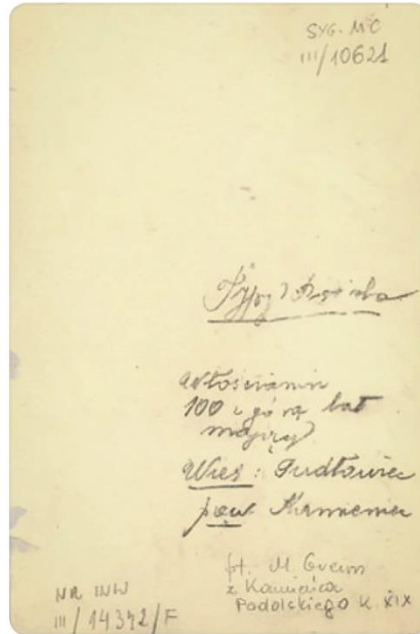 SYG. MC
III/10621
Typy z
Włościanin
100 i górą lat
mający
Wieś: Gudłowiec
pow.
fot. M. Greim
z Kamieńca
Podolskiego k. XIX
NR INW
III/14342/F